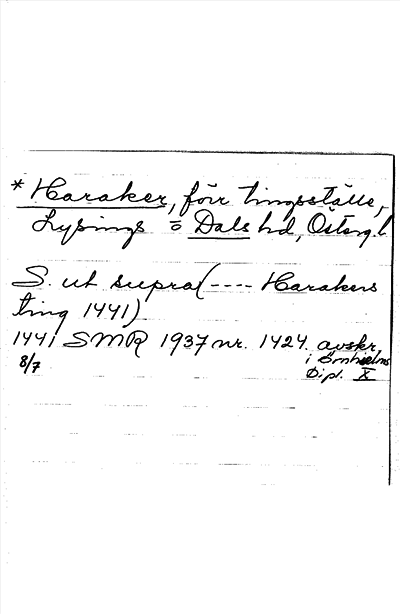 * Haraker, förr tingsställe,
Lysings o Dals hd, Österg.l
S. ut supra (---- Harakers
ting 1441)
1441 SMR 1937 nr. 1424. avskr.
8/7 i Örnhielms
Dipl. X